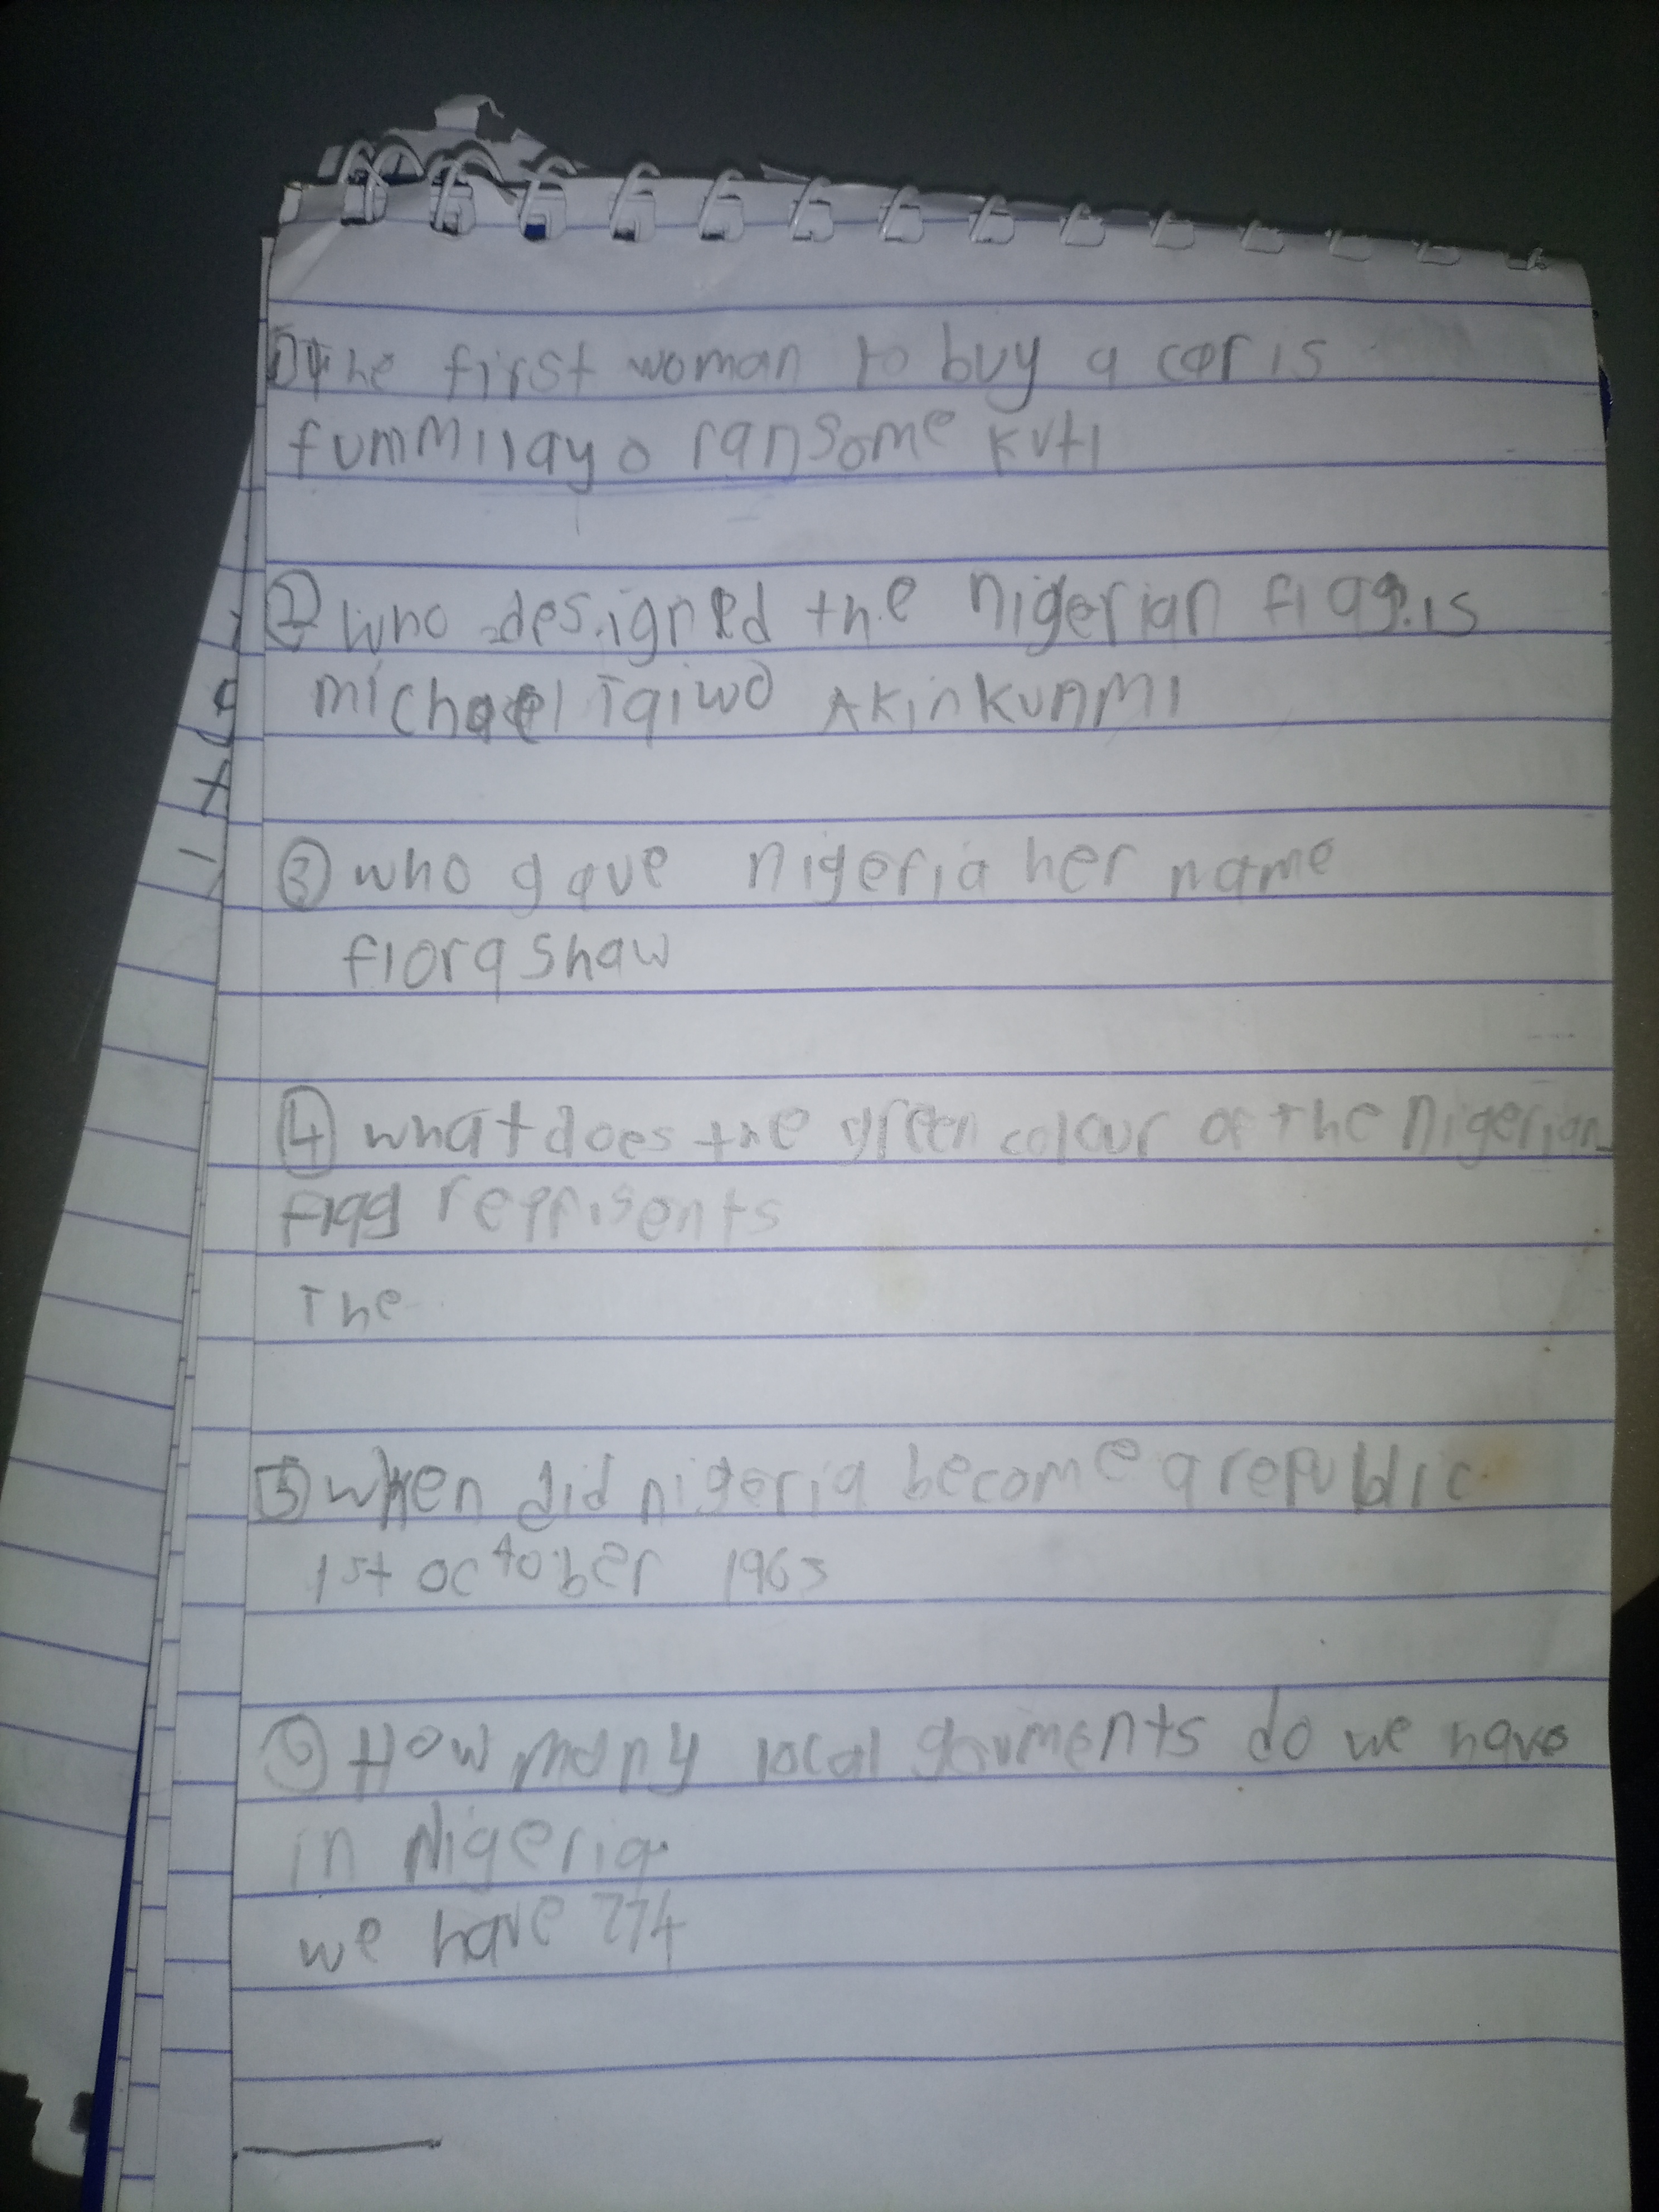 1) The first woman to buy a car is
funmilayo ransome kuti
2 who designed the nigerian flag. is
michael Taiwo Akinkunmi
3 who gave nigeria her name
flora shaw
4 what does the green colour of the Nigerian
flag reprisents
The
5 when did nigeria become a republic
1st october 1963
6 How many local govments do we have
in Nigeria.
we have 774